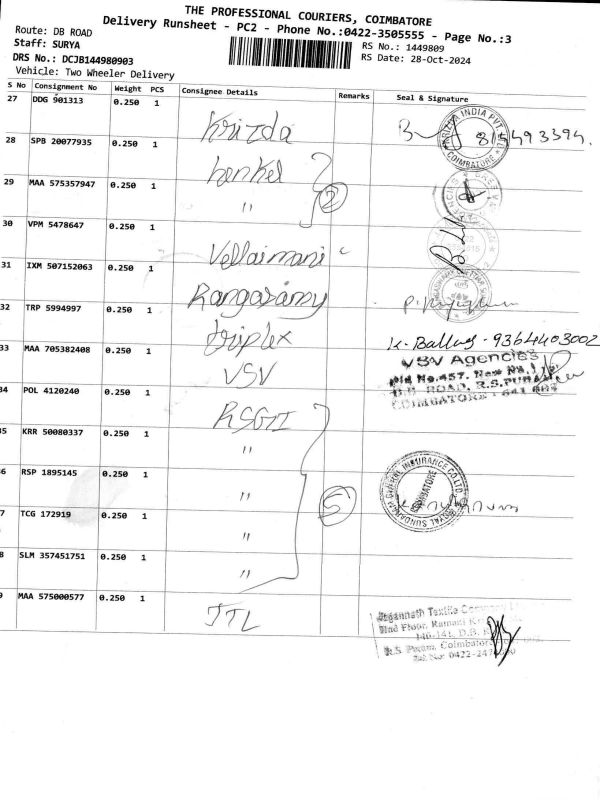 THE PROFESSIONAL COURIERS, COIMBATORE
Delivery Runsheet - PC2 - Phone No.:0422-3505555 - Page No.:3
Route: DB ROAD
Staff: SURYA
RS No.: 1449809
DRS No.: DCJB144980903
RS Date: 28-Oct-2024
Vehicle: Two Wheeler Delivery
S No Consignment No Weight PCS Consignee Details Remarks Seal & Signature
27 DDG 901313 0.250 1 Krizda KRIZDA INDIA PVT COIMBATORE
28 SPB 20077935 0.250 1 henkel
29 MAA 575357947 0.250 1 " 2
30 VPM 5478647 0.250 1 Vellaimani
31 IXM 507152063 0.250 1 Rangasamy
32 TRP 5994997 0.250 1 triplex K. Ballag - 9364403002
33 MAA 705382408 0.250 1 VSV VSV Agencies
Old No.457, New No.1
D.B. ROAD, R.S.PURAM
COIMBATORE - 641 002
34 POL 4120240 0.250 1 RSGII
35 KRR 50080337 0.250 1 "
36 RSP 1895145 0.250 1 " 5 ROYAL SUNDARAM GENERAL INSURANCE CO. LTD. COIMBATORE
37 TCG 172919 0.250 1 "
38 SLM 357451751 0.250 1 "
39 MAA 575000577 0.250 1 JTL Jagannath Textile Company
IInd Floor, Ramani
146-141, D.B.
R.S. Puram, Coimbatore
Tel.No: 0422-247